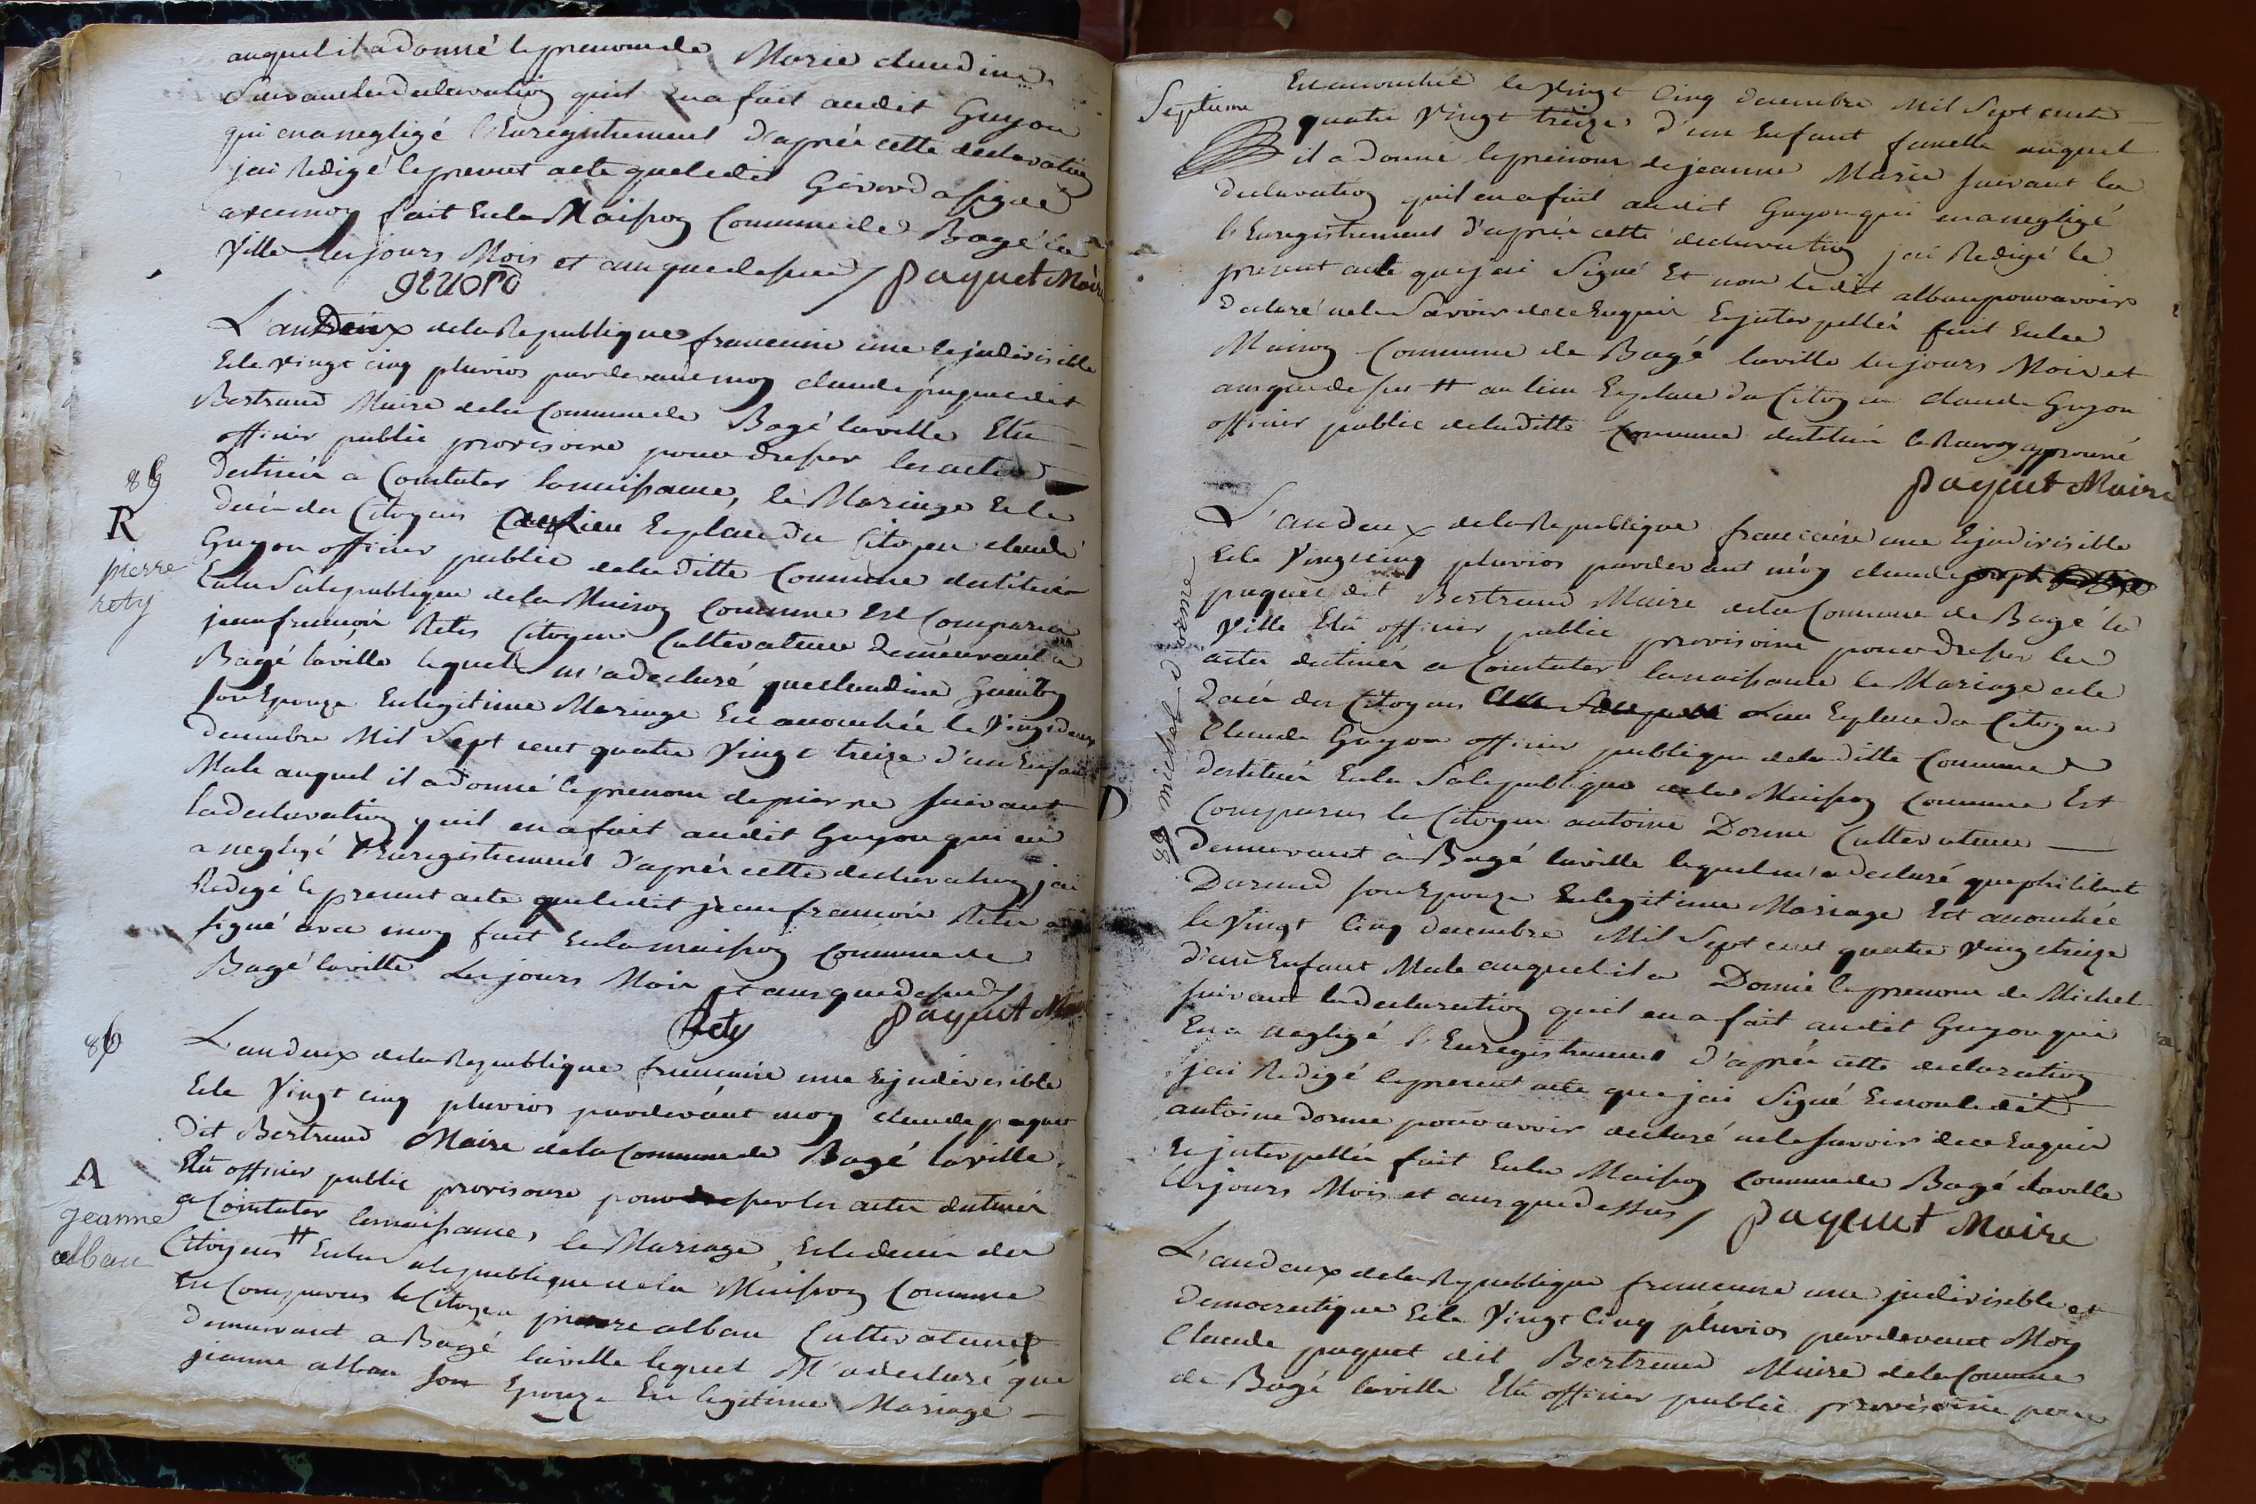 auquel il a donné le prenom de Marie claudine
Suivant la declaration quil en a fait audit Guyon
qui en a negligé l'Enregistrement d'après cette declaration
jai Redigé le present acte que ledit Girord a signé
avec moy fait En la Maison Commune de Bagé la
Ville les jours Mois et an que dessus / paquet Maire
girord
L'an Deux de la Republique francaise une Ejndivisible
Et le vingt cinq pluvios pardevant moy claude paquet dit
Bertrand Maire de la Commune de Bagé laville Elu
officier public provisoire pour dresser les actes
destinés a Constater lanaissance, le Mariage Et le
décès des Citoyens au Lieu Explace du Citoyen claude
Guyon officier public de la ditte Commune destitués
En la Sale publique de la Maison Commune Est Comparu
jean francois Retis Citoyen Cultivateur demeurant a
Bagé laville lequel m'a declaré que claudine
son Epouze En legitime Mariage Est acouchée le Vingt deux
decembre Mil Sept cent quatre Vingt treize d'un Enfant
Male auquel il a donné le prenom de pierre suivant
la declaration quil en a fait audit Guyon qui en
a negligé l'Enregistrement d'après cette declaration jai
Redigé le present acte que ledit jean francois Retis a
signé avec moy fait en la maison Commune de
Bagé laville Les jours Mois et an que dessus /
Rety paquet Maire
86
R
pierre
rety
L'an deux de la Republique francaise une Ejndivisible
Et le Vingt cinq pluvios pardevant moy claude paquet
dit Bertrand Maire de la Commune de Bagé laville
Elu officier public provisoire pour dresser les actes destinés
a Constater lanaissance, le Mariage, Et le decès des
Citoyens # En la Sale publique de la Maison Commune
Est Comparus le Citoyen pierre alban Cultivateur
demeurant a Bagé laville lequel M'a declaré que
jeanne alban son Epouze En legitime Mariage
86
A
jeanne
alban
Septieme
Est acouchée le Vingt Cinq decembre Mil Sept cent
quatre Vingt treize d'un Enfant femelle auquel
il a donné le prenom de jeanne Marie suivant la
declaration quil en a fait audit Guyon qui en a negligé
l'Enregistrement d'après cette declaration jai Redigé le
present acte que jai Signé Et non ledit alban pour avoir
declaré ne le Savoir de ce Enquis Ejnterpellés fait En la
Maison Commune de Bagé laville les jours Mois et
an que dessus # au lieu Explace du Citoyen claude Guyon
officier public de la ditte Commune destitués le Renvoy approuvé
paquet Maire
L'an deux de la Republique francaise une Ejndivisible
Et le Vingt cinq pluvios pardevant moy claude
paquet dit Bertrand Maire de la Commune de Bagé la
Ville Elu officier public provisoire pour dresser les
actes destinés a Constater lanaissance le Mariage et le
décès des Citoyens au Lieu Explace du Citoyen
Claude Guyon officier publique de la ditte Commune
destitués En la Sale publique de la Maison Commune Est
Comparus le Citoyen antoine Dorme Cultivateur
demeurant à Bagé laville lequel m'a declaré que philiberte
Durand son Epouze En legitime Mariage Est acouchée
le Vingt Cinq decembre Mil Sept cent quatre Vingt treize
d'un Enfant Male auquel il a Donné le prenom de Michel
suivant la declaration quil en a fait audit Guyon qui
En a negligé l'Enregistrement d'après cette declaration
jai Redigé le present acte que jai Signé Et non ledit
antoine dorme pour avoir declaré ne le savoir de ce Enquis
Ejnterpellés fait En la Maison Commune de Bagé laville
les jours Mois et an que dessus / paquet Maire
D
88 michel dorme
L'an deux de la Republique francaise une jndivisible et
democratique Et le Vingt Cinq pluvios pardevant Moy
Claude paquet dit Bertrand Maire de la Commune
de Bagé laville Elu officier public provisoire pour